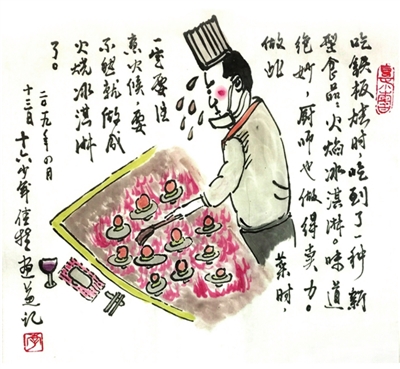 吃铁板烤时,吃到了一种新
型食品:火焰冰淇淋。味道
绝妙,厨师也做得卖力。
做此
菜时,
一定要注
意火候,要
不然就做成
火烧冰淇淋
了。
二〇一九年四月
十三日 十六少年佳 画并记